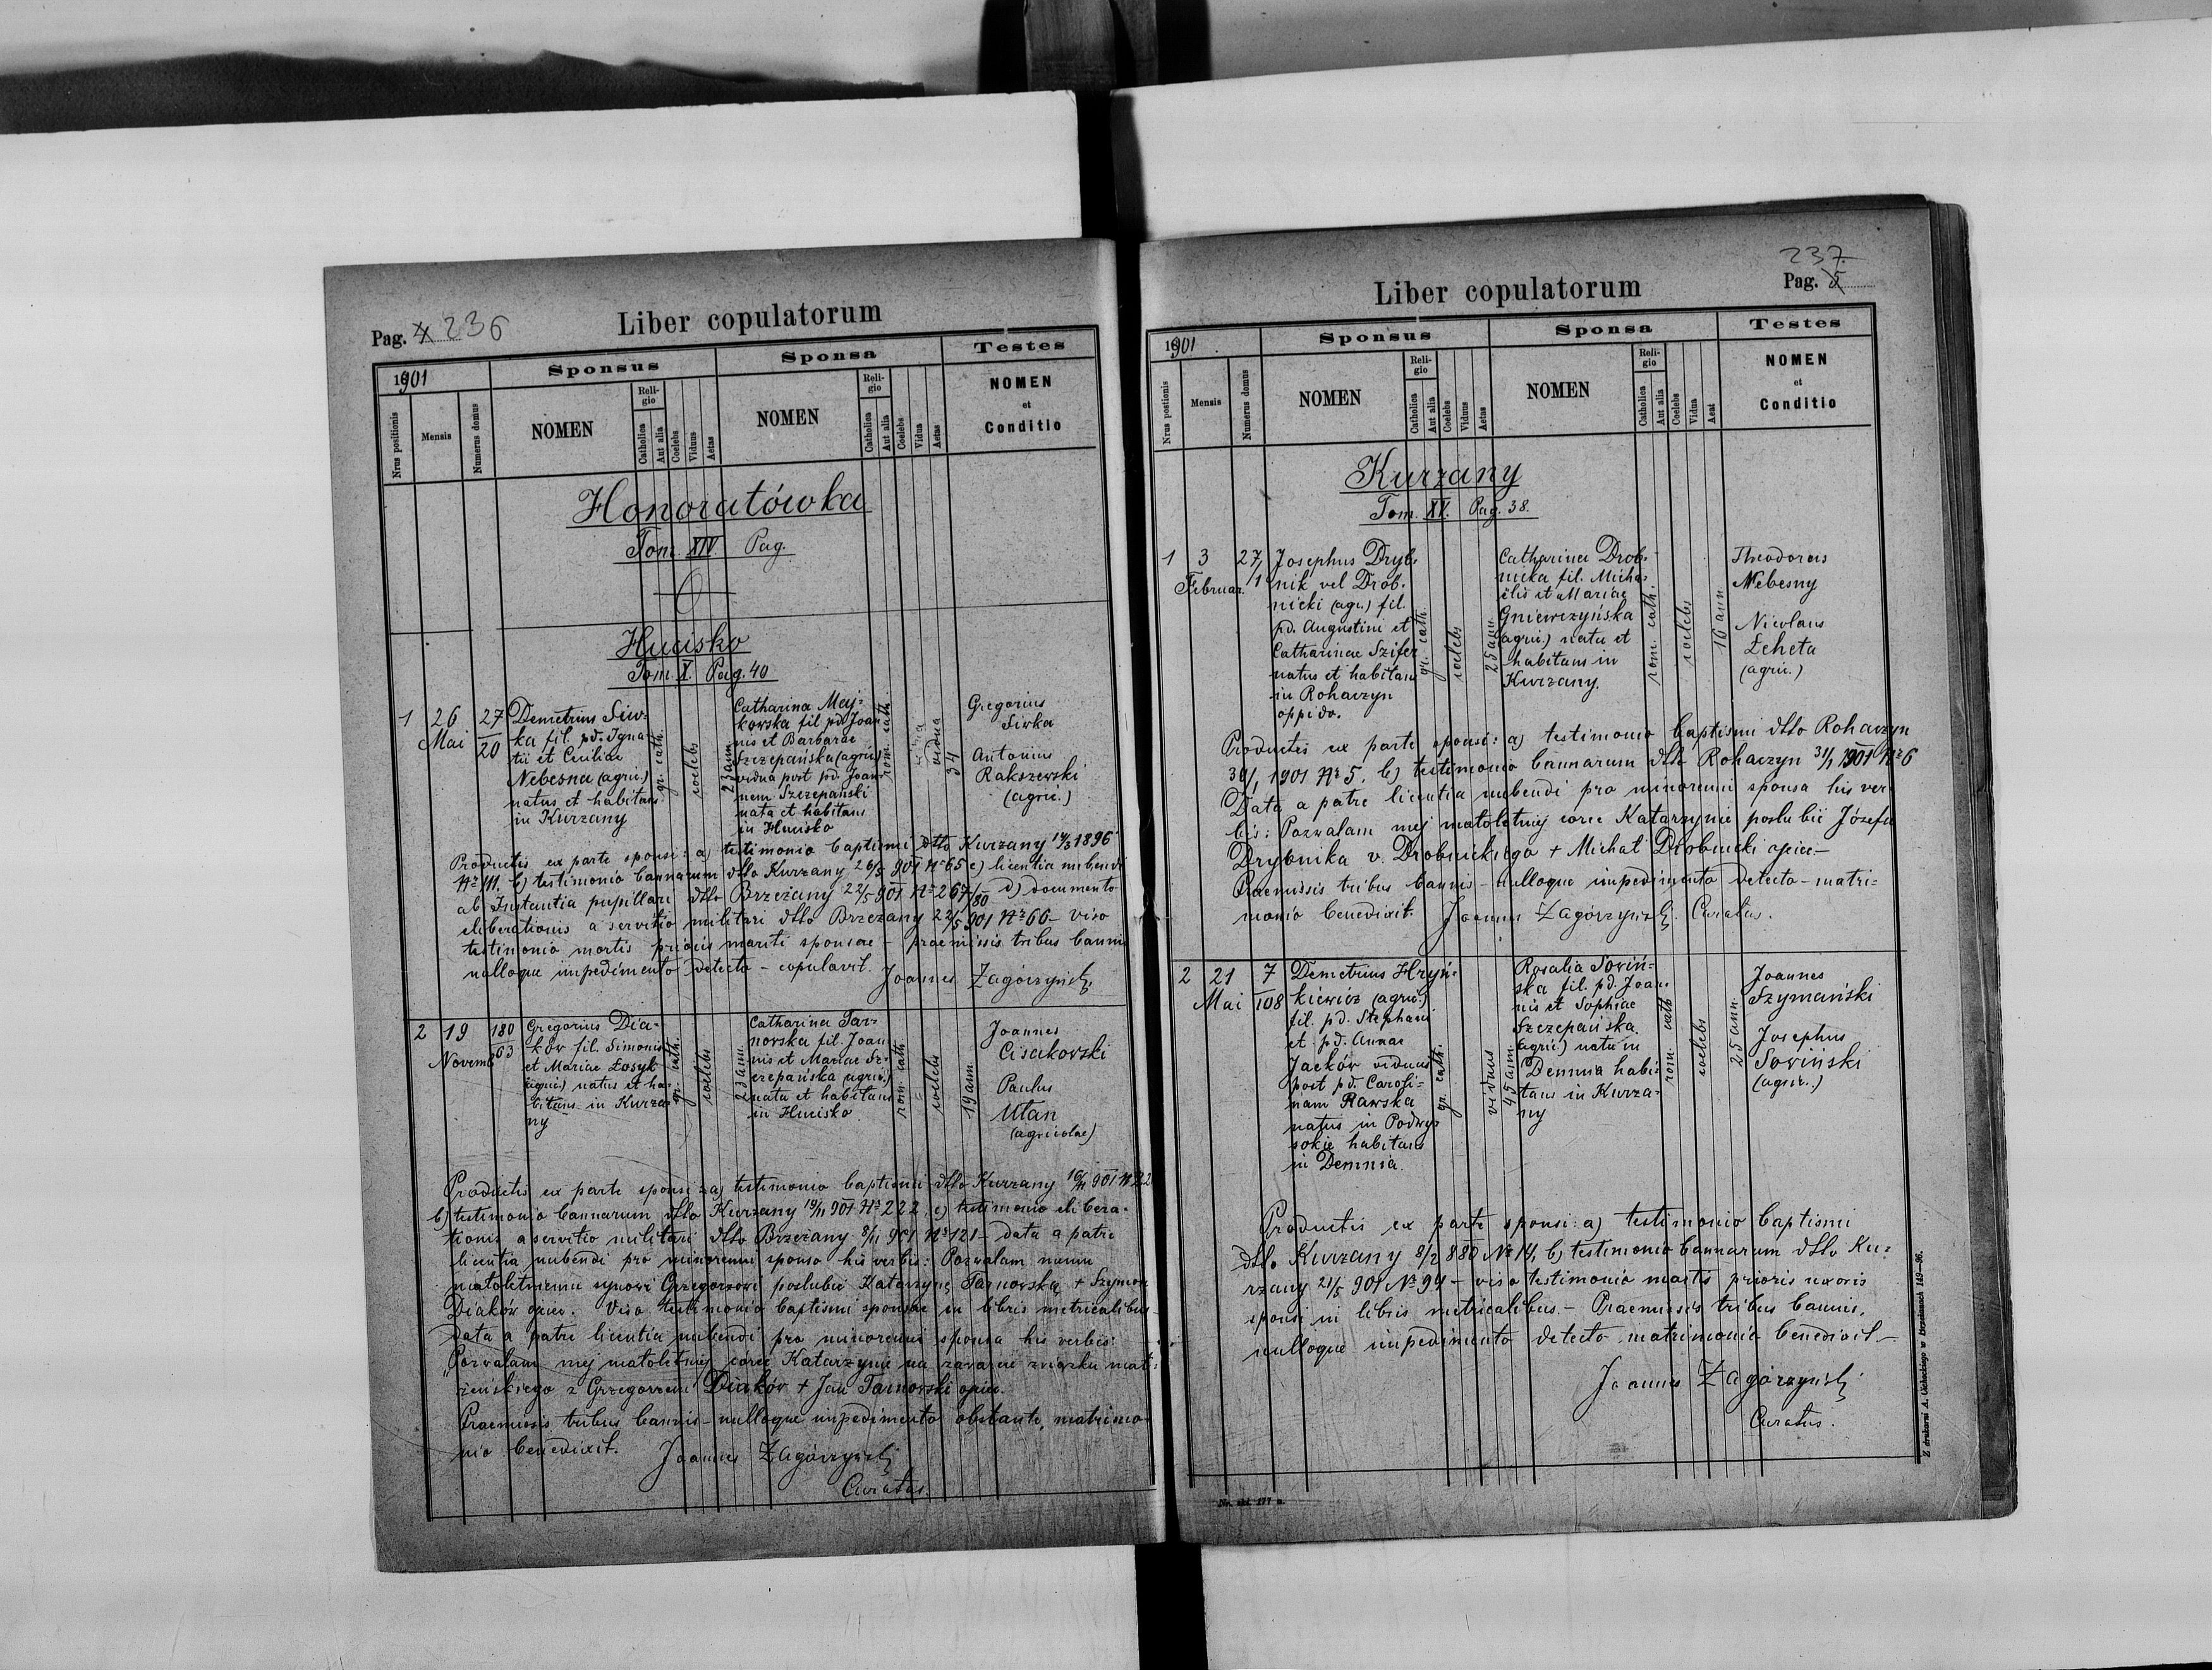 Pag. 4 236
Liber copulatorum
1901
Sponsus
Sponsa
Testes
Nrus positionis
Mensis
Numerus domus
NOMEN
Religio
Catholica
Aut alia
Coelebs
Viduus
Aetas
NOMEN
Religio
Catholica
Aut alia
Coelebs
Vidua
Aetas
NOMEN
et
Conditio
Honoratówka
Tom. XIV. Pag.
Hucisko
Tom. X. Pag. 40
1
26
Mai
27
20
Demetrius Siw-
ka fil. pd. Igna-
tii et Ceciliae
Nebesna (agric.)
natus et habitans
in Kurzany
gr. cath.
coelebs
23 ann.
Catharina Maj-
kowska fil pd. Joan-
nis et Barbarae
Szczepańska (agric.)
vidua post pd. Joan-
nem Szczepański
nata et habitans
in Hucisko
rom. cath.
vidua
34
Gregorius
Siwka
Antonius
Rakszewski
(agric.)
Productis ex parte sponsi: a) testimonio baptismi dtto Kurzany 14/3 1896
No 111, b) testimonio bannorum dtto Kurzany 26/5 901 No 65 c) licentia nubendi
ab Instantia pupillari dtto Brzeżany 22/5 901 No 267/80 d) documento
eliberationis a servitio militari dtto Brzeżany 23/5 901 No 66 - viso
testimonio mortis prioris mariti sponsae - praemissis tribus bannis
nulloque impedimento detecto - copulavit. Joannes Zagórzyński
2
19
Novemb
180
63
Gregorius Dia-
ków fil. Simonis
et Mariae Łosyk
(agric.) natus et ha-
bitans in Kurza-
ny
gr. cath.
coelebs
23 ann.
Catharina Tar-
nowska fil. Joan-
nis et Mariae Sz-
czepańska (agric.)
nata et habitans
in Hucisko
rom. cath.
coelebs
19 ann.
Joannes
Cisakowski
Paulus
Ułan
(agricolae)
Productis ex parte sponsi: a) testimonio baptismi dtto Kurzany 901
b) testimonio bannorum dtto Kurzany 19/11 901 No 222. c) testimonio elibera-
tionis a servitio militari dtto Brzeżany 8/11 901 No 121 - data a patre
licentia nubendi pro minorenni sponso his verbis: Pozwalam memu
małoletniemu synowi Grzegorzowi poślubić Katarzynę Tarnowską + Szymon
Diaków ojciec. Viso testimonio baptismi sponsae in libris metricalibus
data a patre licentia nubendi pro minorenni sponsa his verbis:
"Pozwalam mej małoletniej córce Katarzynie na zawarcie związku mał-
żeńskiego z Grzegorzem Diaków + Jan Tarnowski ojciec.
Praemissis tribus bannis - nulloque impedimento obstante, matrimo-
nio benedixit. Joannes Zagórzyński
Curatus.
237.
Pag. 5
Liber copulatorum
1901
Sponsus
Sponsa
Testes
Nrus postionis
Mensis
Numerus domus
NOMEN
Religio
Catholica
Aut alia
Coelebs
Viduus
Aetas
NOMEN
Religio
Catholica
Aut alia
Coelebs
Vidua
Aeat
NOMEN
et
Conditio
Kurzany
Tom. XV. Pag. 38.
1
3
Februar.
27/1
Josephus Dryb-
nik vel Drob-
nicki (agr.) fil.
pd. Augustini et
Catharinae Szifer
natus et habitans
in Rohaczyn
oppido.
gr. cath.
coelebs
25 ann.
Catharina Drob-
nicka fil. Micha-
elis et Mariae
Gniewczyńska
(agric.) nata et
habitans in
Kurzany.
rom. cath.
coelebs
16 ann
Theodorus
Nebesny
Nicolaus
Łeheta
(agric.)
Productis ex parte sponsi: a) testimonio baptismi dtto Rohaczyn
30/1 1901 No 5. b) testimonio bannorum dtto Rohaczyn 31/1 1901 No 6
Data a patre licentia nubendi pro minorenni sponsa his ver-
bis: Pozwalam mej małoletniej córce Katarzynie poślubić Józefa
Drybnika v. Drobnickiego + Michał Drobnicki ojciec -
Praemissis tribus bannis - nulloque impedimento detecto - matri-
monio benedixit. Joannes Zagórzyński Curatus.
2
21
Mai
7
108
Demetrius Hryń-
kiewicz (agric.)
fil. pd. Stephani
et pd. Annae
Jacków viduus
post pd. Caroli-
nam Rawska
natus in Podwy-
sokie habitans
in Demnia.
gr. cath.
viduus
45 ann.
Rosalia Sowiń-
ska fil. pd. Joan-
nis et Sophiae
Szczepańska.
(agric.) nata in
Demnia habi-
tans in Kurza-
ny
rom. cath
coelebs
25 ann.
Joannes
Szymański
Josephus
Sowiński
(agric.)
Productis ex parte sponsi: a) testimonio baptismi
dtto Kurzany 8/2 880 No 14, b) testimonio bannorum dtto Ku-
rzany 21/5 901 No 94 - viso testimonio mortis prioris uxoris
sponsi in libris metricalibus. - Praemissis tribus bannis,
nulloque impedimento detecto matrimonio benedixit -
Joannes Zagórzyński
Curatus.
Z drukarni A. Cichockiego w Brzeżanach 149—96.